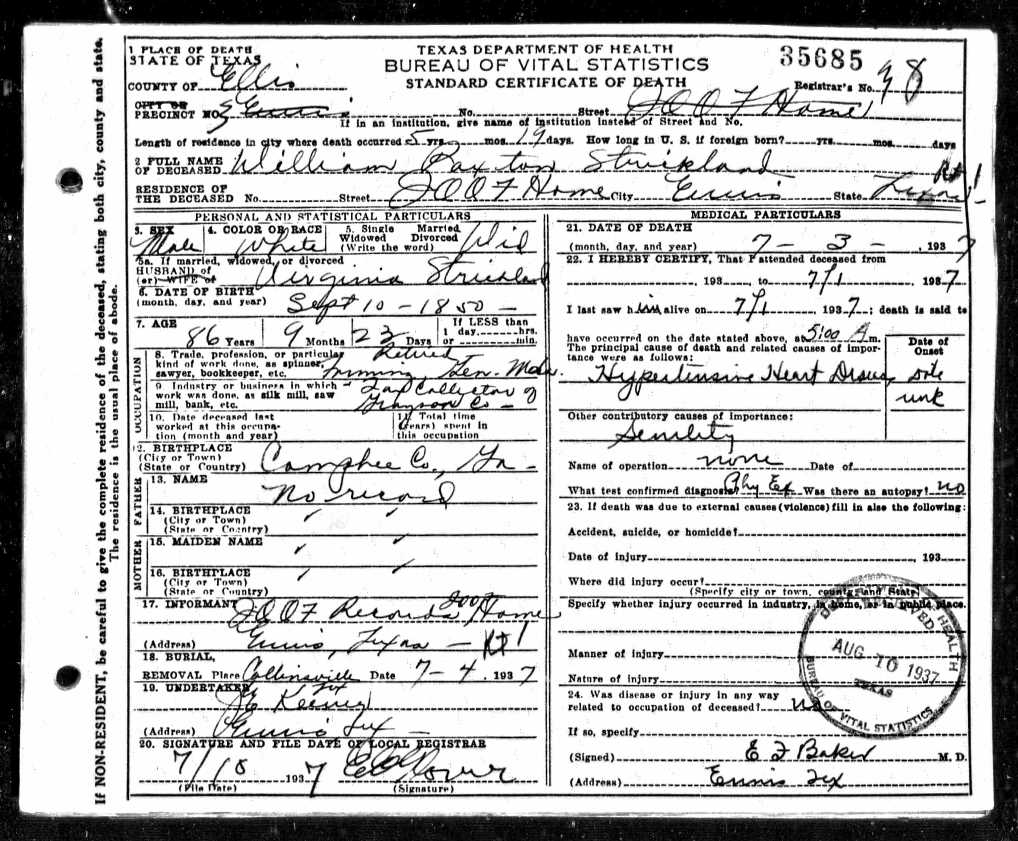 If NON-RESIDENT, be careful to give the complete residence of the deceased, stating both city, county and state.
The residence is the usual place of abode.
1 PLACE OF DEATH
STATE OF TEXAS
COUNTY OF Ellis
CITY OR
PRECINCT NO. Ennis
TEXAS DEPARTMENT OF HEALTH
BUREAU OF VITAL STATISTICS
STANDARD CERTIFICATE OF DEATH
35685
Registrar's No. 98
No. Street IOOF Home
If in an institution, give name of institution instead of Street and No.
Length of residence in city where death occurred 5 yrs. mos. 19 days. How long in U. S. if foreign born? yrs. mos. days
2 FULL NAME
OF DECEASED William Paxton Strickland
RESIDENCE OF
THE DECEASED No. Street IOOF Home City Ennis State Texas Rt 1
PERSONAL AND STATISTICAL PARTICULARS
3. SEX Male
4. COLOR OR RACE White
5. Single Married
Widowed Divorced
(Write the word) Wid
5a. If married, widowed, or divorced
HUSBAND of
(or) WIFE of Virginia Strickland
6. DATE OF BIRTH
(month, day, and year) Sept 10 - 1850
7. AGE
86 Years 9 Months 23 Days
If LESS than
1 day, hrs.
or min.
OCCUPATION
8. Trade, profession, or particular
kind of work done, as spinner,
sawyer, bookkeeper, etc. Retired
Farming Gen. Mdse.
9. Industry or business in which
work was done, as silk mill, saw
mill, bank, etc. Tax Collector of
Grayson Co -
10. Date deceased last
worked at this occupa-
tion (month and year)
11. Total time
(years) spent in
this occupation
12. BIRTHPLACE
(City or Town)
(State or Country) Co., Ga -
FATHER
13. NAME No record
14. BIRTHPLACE
(City or Town)
(State or Country)
MOTHER
15. MAIDEN NAME
16. BIRTHPLACE
(City or Town)
(State or Country)
17. INFORMANT IOOF Records IOOF Home
(Address) Ennis, Texas - Rt 1
18. BURIAL,
REMOVAL Place Collinsville Tx Date 7-4. 1937
19. UNDERTAKER
J E Keever
(Address) Ennis Tex -
20. SIGNATURE AND FILE DATE OF LOCAL REGISTRAR
7/10 1937
(File Date) (Signature)
MEDICAL PARTICULARS
21. DATE OF DEATH
(month, day, and year) 7 - 3 - , 1937
22. I HEREBY CERTIFY, That I attended deceased from
, 193 , to 7/1 1937
I last saw him alive on 7/1 1937; death is said to
have occurred on the date stated above, at 5:00 A m.
The principal cause of death and related causes of impor-
tance were as follows:
Date of
Onset
Hypertensive Heart Disease
Date
unk
Other contributory causes of importance:
Senility
Name of operation none Date of
What test confirmed diagnosis? Phy Ex Was there an autopsy? no
23. If death was due to external causes (violence) fill in also the following:
Accident, suicide, or homicide?
Date of injury , 193
Where did injury occur?
(Specify city or town, county, and State)
Specify whether injury occurred in industry, in home, or in public place.
Manner of injury
Nature of injury
AUG 10 1937
TEXAS
BUREAU OF VITAL STATISTICS
24. Was disease or injury in any way
related to occupation of deceased? No
If so, specify
(Signed) E F Baker M. D.
(Address) Ennis Tex